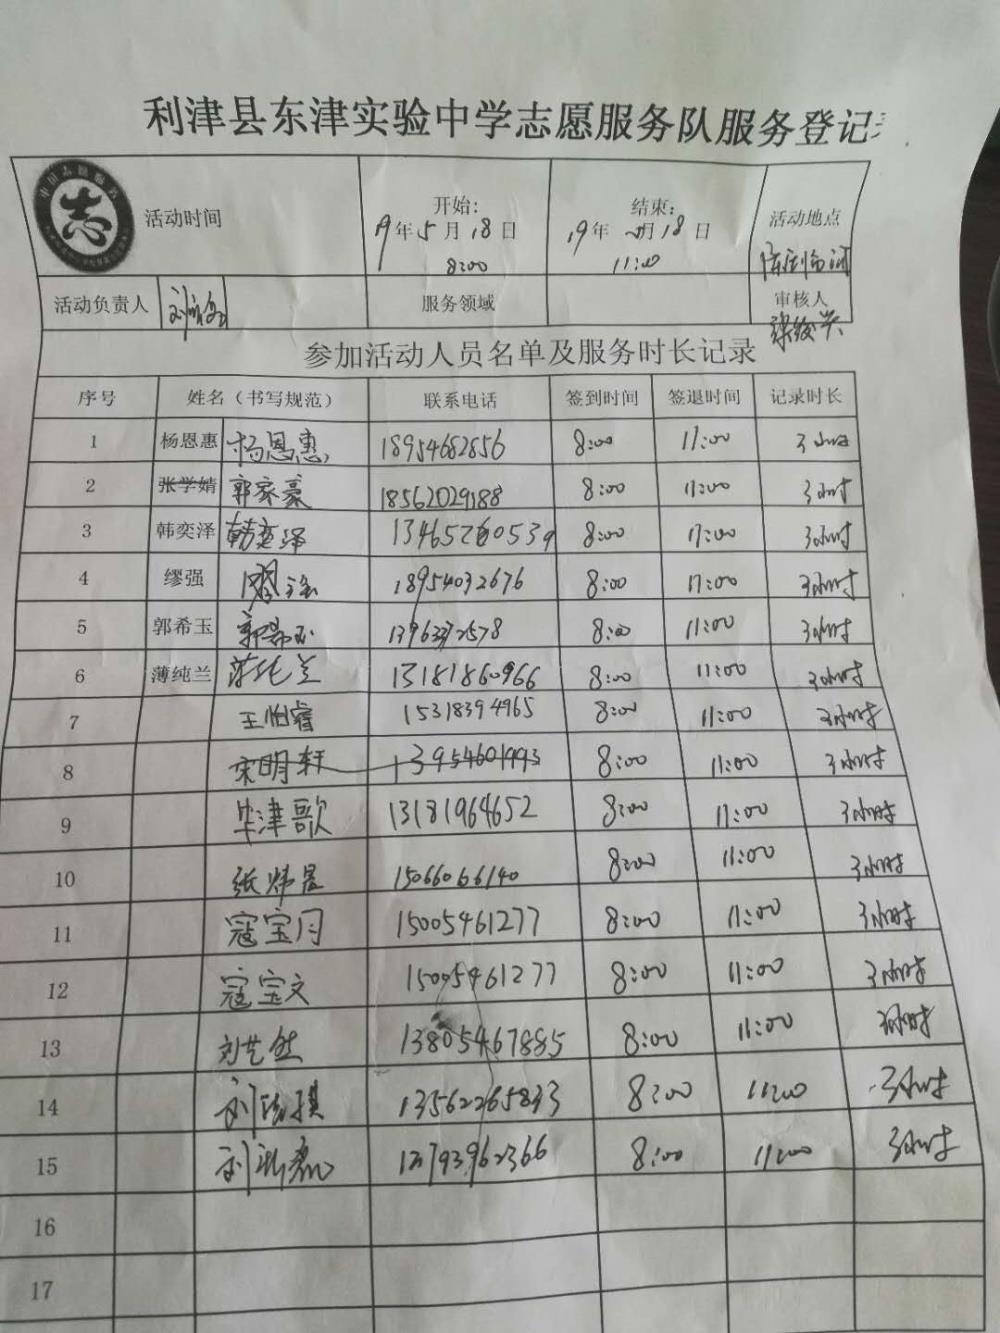 利津县东津实验中学志愿服务队服务登记
志
活动时间 开始： 结束： 活动地点
19年5月18日 19年 月18日
8:00 11:00
活动负责人 服务领域 审核人
参加活动人员名单及服务时长记录
序号 姓名（书写规范） 联系电话 签到时间 签退时间 记录时长
1 杨恩惠 杨恩惠 18954682856 8:00 11:00 3小时
2 张学婧 郭家豪 18562029188 8:00 11:00 3小时
3 韩奕泽 韩奕泽 13465260539 8:00 11:00 3小时
4 缪强 缪强 18954032676 8:00 11:00 3小时
5 郭希玉 郭希玉 8:00 11:00 3小时
6 薄纯兰 薄纯兰 13181860966 8:00 11:00 3小时
7 王怡睿 15318394965 8:00 11:00 3小时
8 宋明轩 13954601993 8:00 11:00 3小时
9 毕津歌 13181964652 8:00 11:00 3小时
10 张炜昱 15066066140 8:00 11:00 3小时
11 寇宝闫 15005461277 8:00 11:00 3小时
12 寇宝文 15005461277 8:00 11:00 3小时
13 刘艺然 13805467885 8:00 11:00 3小时
14 13562265833 8:00 11:00 3小时
15 13793962366 8:00 11:00 3小时
16
17